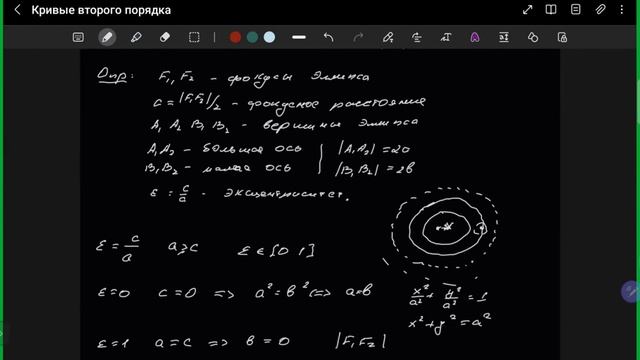 Кривые второго порядка
Опр: F₁, F₂ - фокусы эллипса
c = |F₁F₂|/2 - фокусное расстояние
A₁ A₂ B₁ B₂ - вершины эллипса
A₁A₂ - большая ось |A₁A₂| = 2a
B₁B₂ - малая ось |B₁B₂| = 2b
ε = c/a - эксцентриситет.
ε = c/a a ≥ c ε ∈ [0 1]
ε = 0 c = 0 => a² = b² <=> a = b
x²/a² + y²/a² = 1
x² + y² = a²
ε = 1 a = c => b = 0 |F₁F₂|